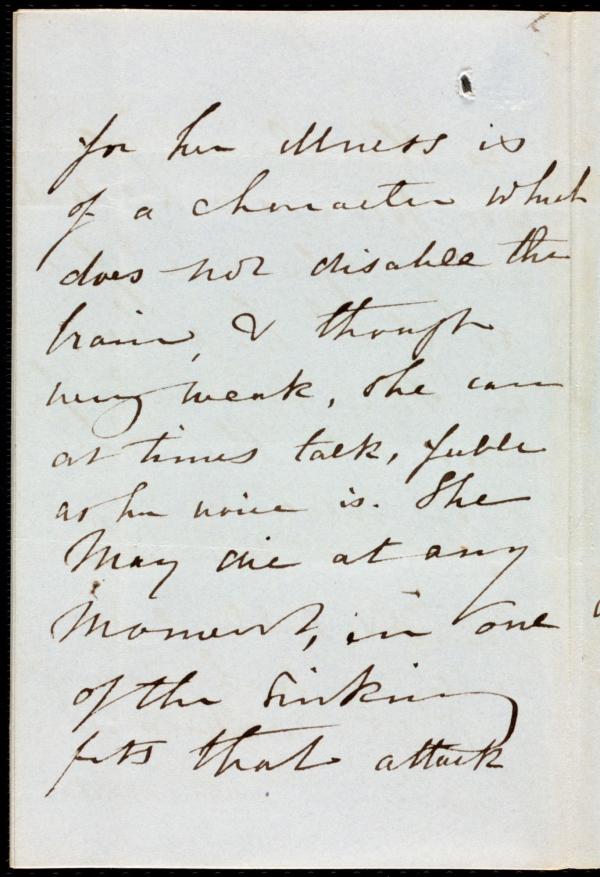 for her illness is
of a character which
does not disable the
brain, & though
very weak, she can
at times talk, feeble
as her voice is. She
May die at any
Moment, in one
of the sinking
fits that attack